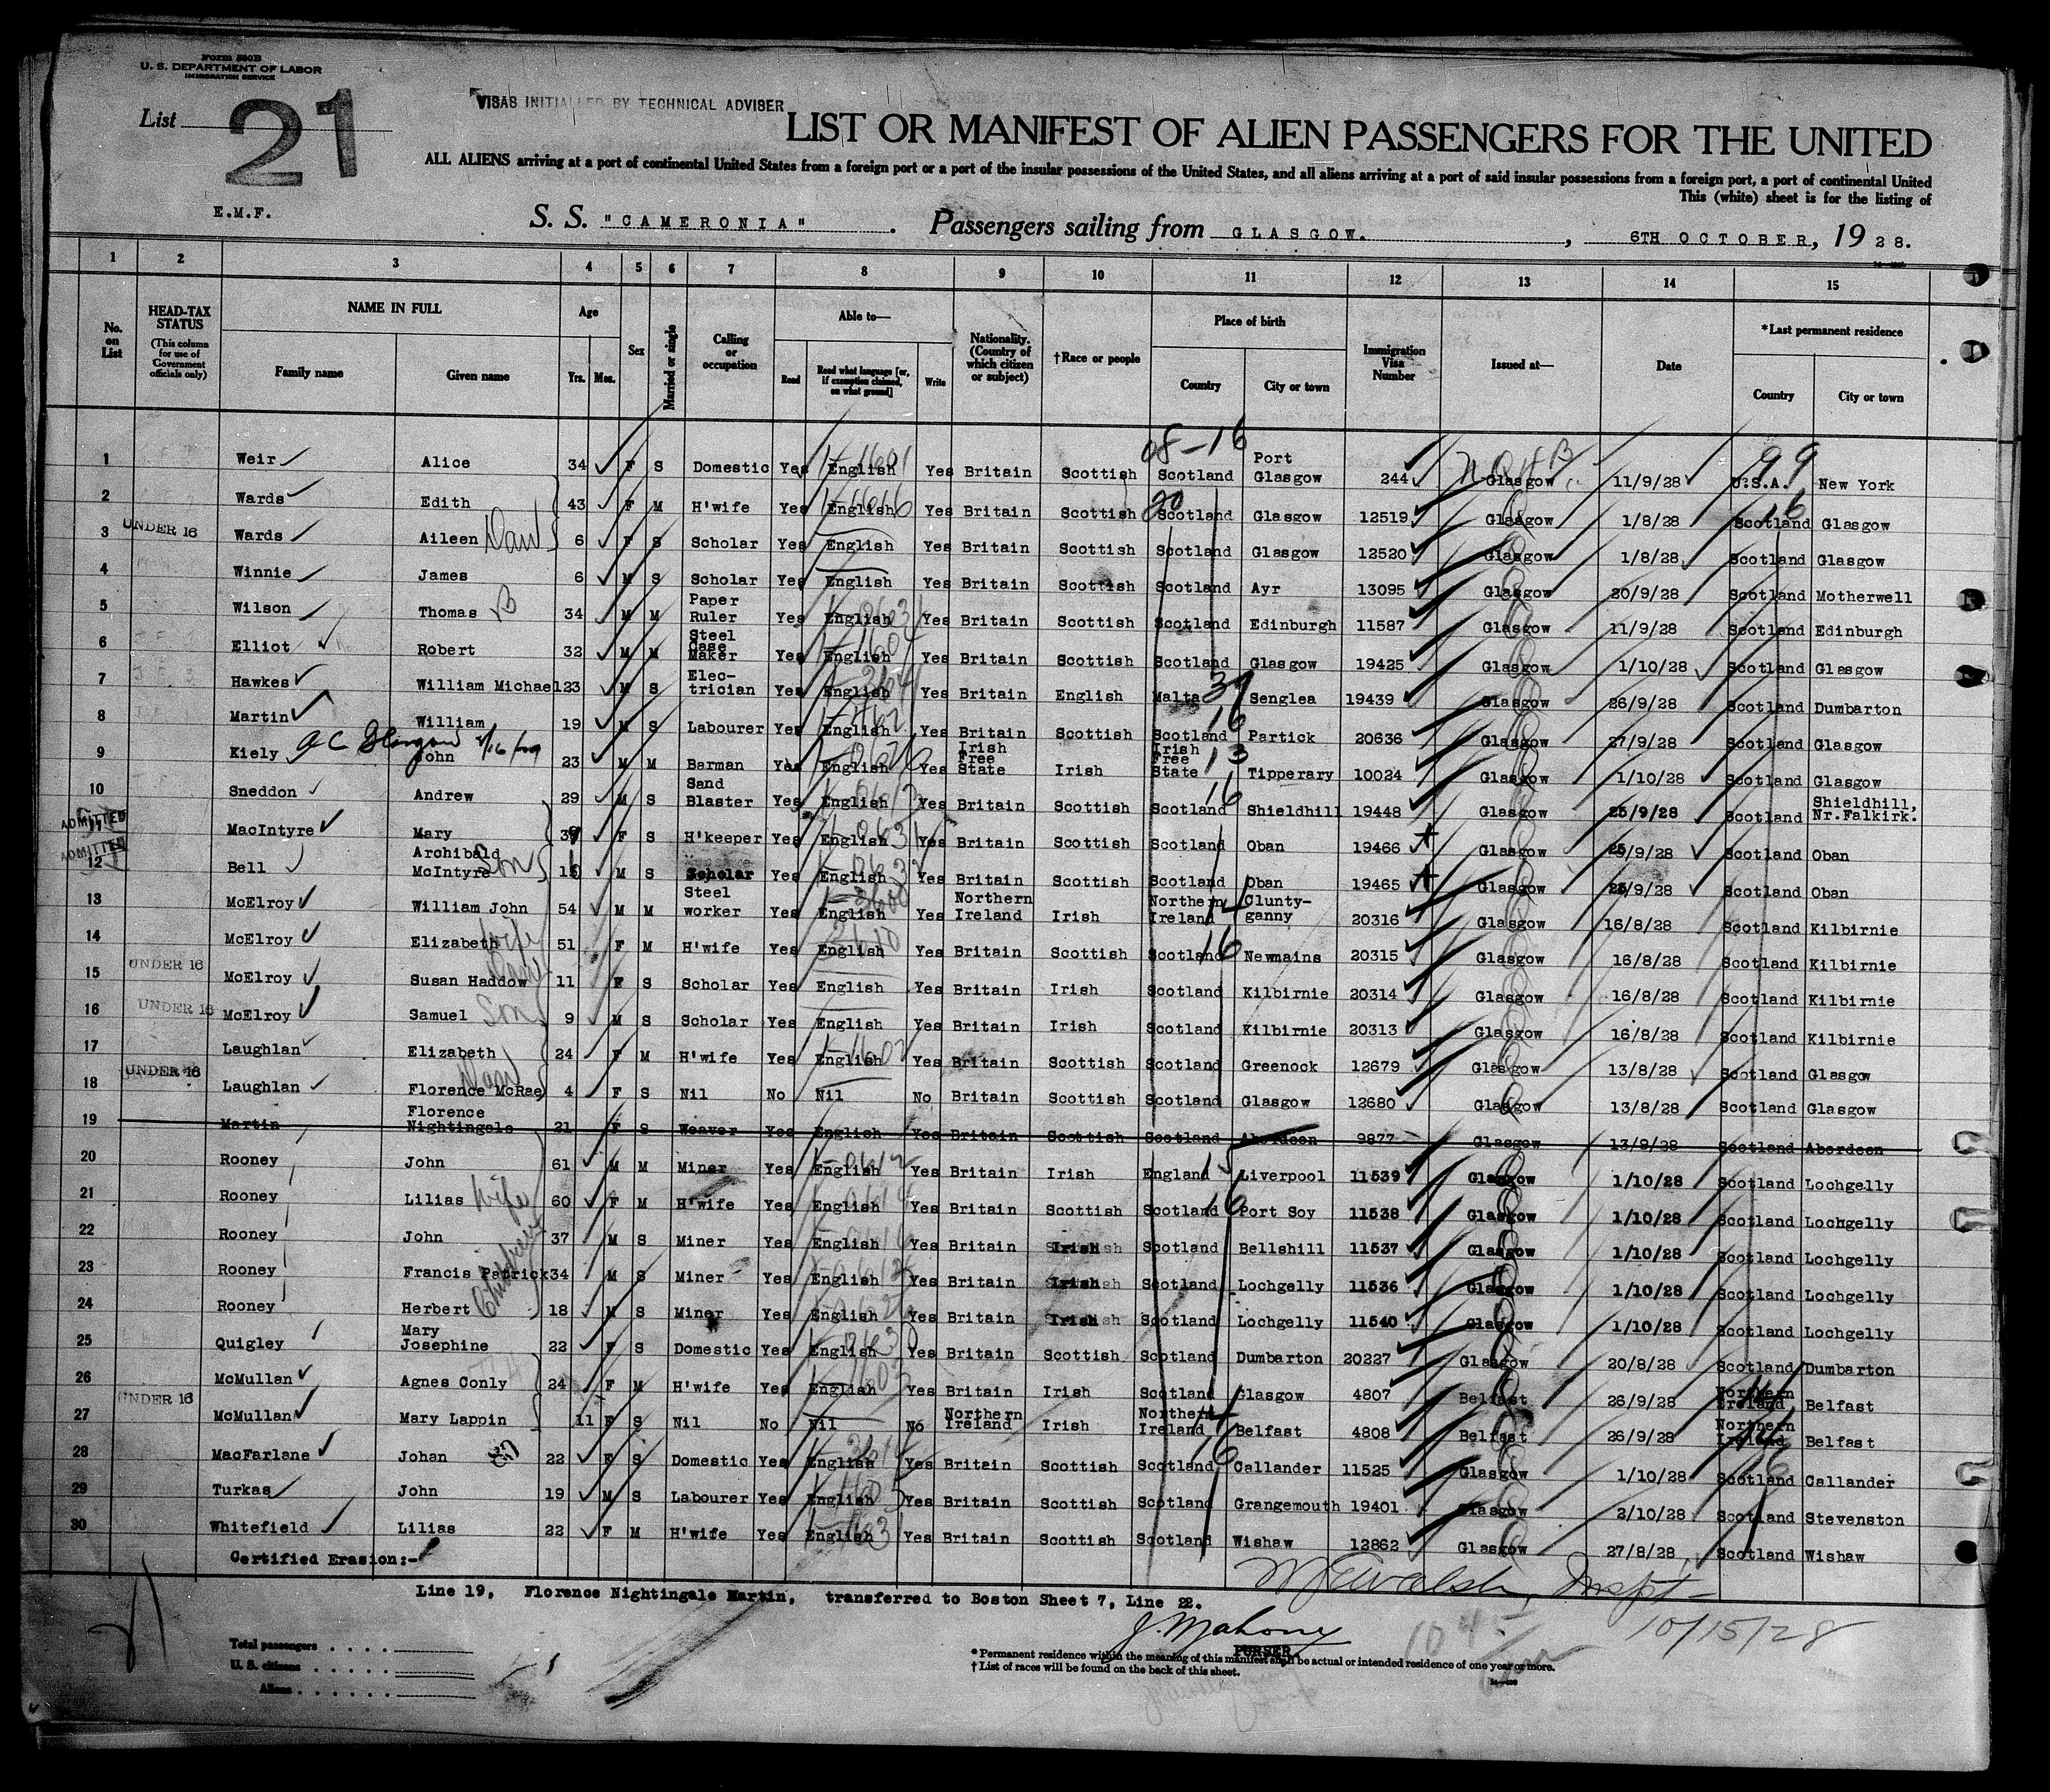 Form 500B
U. S. DEPARTMENT OF LABOR
IMMIGRATION SERVICE
List 21
VISAS INITIALLED BY TECHNICAL ADVISER
LIST OR MANIFEST OF ALIEN PASSENGERS FOR THE UNITED
ALL ALIENS arriving at a port of continental United States from a foreign port or a port of the insular possessions of the United States, and all aliens arriving at a port of said insular possessions from a foreign port, a port of continental United
This (white) sheet is for the listing of
E.M.F.
S. S. "CAMERONIA". Passengers sailing from GLASGOW., 6TH OCTOBER, 1928.
1 2 3 4 5 6 7 8 9 10 11 12 13 14 15
No. on List
HEAD-TAX STATUS (This column for use of Government officials only)
NAME IN FULL
Family name Given name
Age Yrs. Mos.
Sex
Married or single
Calling or occupation
Able to—
Read Read what language [or, if exemption claimed, on what ground] Write
Nationality. (Country of which citizen or subject)
†Race or people
Place of birth
Country City or town
Immigration Visa Number
Issued at—
Date
*Last permanent residence
Country City or town
08-16
1 Weir Alice 34 F S Domestic Yes English Yes Britain Scottish Scotland Port Glasgow 244 Glasgow 11/9/28 U.S.A. New York 99
2 Wards Edith 43 F M H'wife Yes English Yes Britain Scottish Scotland Glasgow 12519 Glasgow 1/8/28 Scotland Glasgow 16
UNDER 16
3 Wards Aileen Dau 6 F S Scholar Yes English Yes Britain Scottish Scotland Glasgow 12520 Glasgow 1/8/28 Scotland Glasgow
4 Winnie James 6 M S Scholar Yes English Yes Britain Scottish Scotland Ayr 13095 Glasgow 20/9/28 Scotland Motherwell
5 Wilson Thomas B 34 M M Paper Ruler Yes English Yes Britain Scottish Scotland Edinburgh 11587 Glasgow 11/9/28 Scotland Edinburgh
6 Elliot Robert 32 M M Steel Case Maker Yes English Yes Britain Scottish Scotland Glasgow 19425 Glasgow 1/10/28 Scotland Glasgow
7 Hawkes William Michael 23 M S Elec-trician Yes English Yes Britain English Malta Senglea 19439 Glasgow 26/9/28 Scotland Dumbarton
8 Martin William 19 M S Labourer Yes English Yes Britain Scottish Scotland 16 Partick 20636 Glasgow 27/9/28 Scotland Glasgow
9 Kiely John 23 M M Barman Yes English Yes Irish Free State Irish Irish Free State 13 Tipperary 10024 Glasgow 1/10/28 Scotland Glasgow
10 Sneddon Andrew 29 M S Sand Blaster Yes English Yes Britain Scottish Scotland 16 Shieldhill 19448 Glasgow 25/9/28 Scotland Shieldhill, Nr.Falkirk.
ADMITTED
MacIntyre Mary F S H'keeper Yes English Yes Britain Scottish Scotland Oban 19466 Glasgow 25/9/28 Scotland Oban
ADMITTED
12 Bell Archibald McIntyre Son M S Scholar Yes English Yes Britain Scottish Scotland Oban 19465 Glasgow 25/9/28 Scotland Oban
13 McElroy William John 54 M M Steel worker Yes English Yes Northern Ireland Irish Northern Ireland Clunty-ganny 20316 Glasgow 16/8/28 Scotland Kilbirnie
14 McElroy Elizabeth Wife 51 F M H'wife Yes English Yes Britain Scottish Scotland 16 Newmains 20315 Glasgow 16/8/28 Scotland Kilbirnie
UNDER 16
15 McElroy Susan Haddow Dau 11 F S Scholar Yes English Yes Britain Irish Scotland Kilbirnie 20314 Glasgow 16/8/28 Scotland Kilbirnie
UNDER 16
16 McElroy Samuel Son 9 M S Scholar Yes English Yes Britain Irish Scotland Kilbirnie 20313 Glasgow 16/8/28 Scotland Kilbirnie
17 Laughlan Elizabeth 24 F M H'wife Yes English Yes Britain Scottish Scotland Greenock 12679 Glasgow 13/8/28 Scotland Glasgow
UNDER 16
18 Laughlan Florence McRae Dau 4 F S Nil No Nil No Britain Scottish Scotland Glasgow 12680 Glasgow 13/8/28 Scotland Glasgow
19 Martin Florence Nightingale 21 F S Weaver Yes English Yes Britain Scottish Scotland Aberdeen 9877 Glasgow 13/9/28 Scotland Aberdeen
20 Rooney John 61 M M Miner Yes English Yes Britain Irish England 15 Liverpool 11539 Glasgow 1/10/28 Scotland Lochgelly
21 Rooney Lilias Wife 60 F M H'wife Yes English Yes Britain Scottish Scotland 16 Port Soy 11538 Glasgow 1/10/28 Scotland Lochgelly
22 Rooney John 37 M S Miner Yes English Yes Britain Irish Scotland Bellshill 11537 Glasgow 1/10/28 Scotland Lochgelly
23 Rooney Francis Patrick 34 M S Miner Yes English Yes Britain Irish Scotland Lochgelly 11536 Glasgow 1/10/28 Scotland Lochgelly
24 Rooney Herbert Children 18 M S Miner Yes English Yes Britain Irish Scotland Lochgelly 11540 Glasgow 1/10/28 Scotland Lochgelly
25 Quigley Mary Josephine 22 F S Domestic Yes English Yes Britain Scottish Scotland Dumbarton 20227 Glasgow 20/8/28 Scotland Dumbarton
26 McMullan Agnes Conly 24 F M H'wife Yes English Yes Britain Irish Scotland Glasgow 4807 Belfast 26/9/28 Northern Ireland Belfast
UNDER 16
27 McMullan Mary Lappin 11 F S Nil No Nil No Northern Ireland Irish Northern Ireland Belfast 4808 Belfast 26/9/28 Northern Ireland Belfast
28 MacFarlane Johan 22 F S Domestic Yes English Yes Britain Scottish Scotland 16 Callander 11525 Glasgow 1/10/28 Scotland Callander
29 Turkas John 19 M S Labourer Yes English Yes Britain Scottish Scotland Grangemouth 19401 Glasgow 2/10/28 Scotland Stevenston
30 Whitefield Lilias 22 F M H'wife Yes English Yes Britain Scottish Scotland Wishaw 12862 Glasgow 27/8/28 Scotland Wishaw
Certified Erasion:-
Line 19, Florence Nightingale Martin, transferred to Boston Sheet 7, Line 22.
Walsh, Inspt
10/15/28
J. Mahony
PURSER
Total passengers
U. S. citizens
Aliens
* Permanent residence within the meaning of this manifest shall be actual or intended residence of one year or more.
† List of races will be found on the back of this sheet.